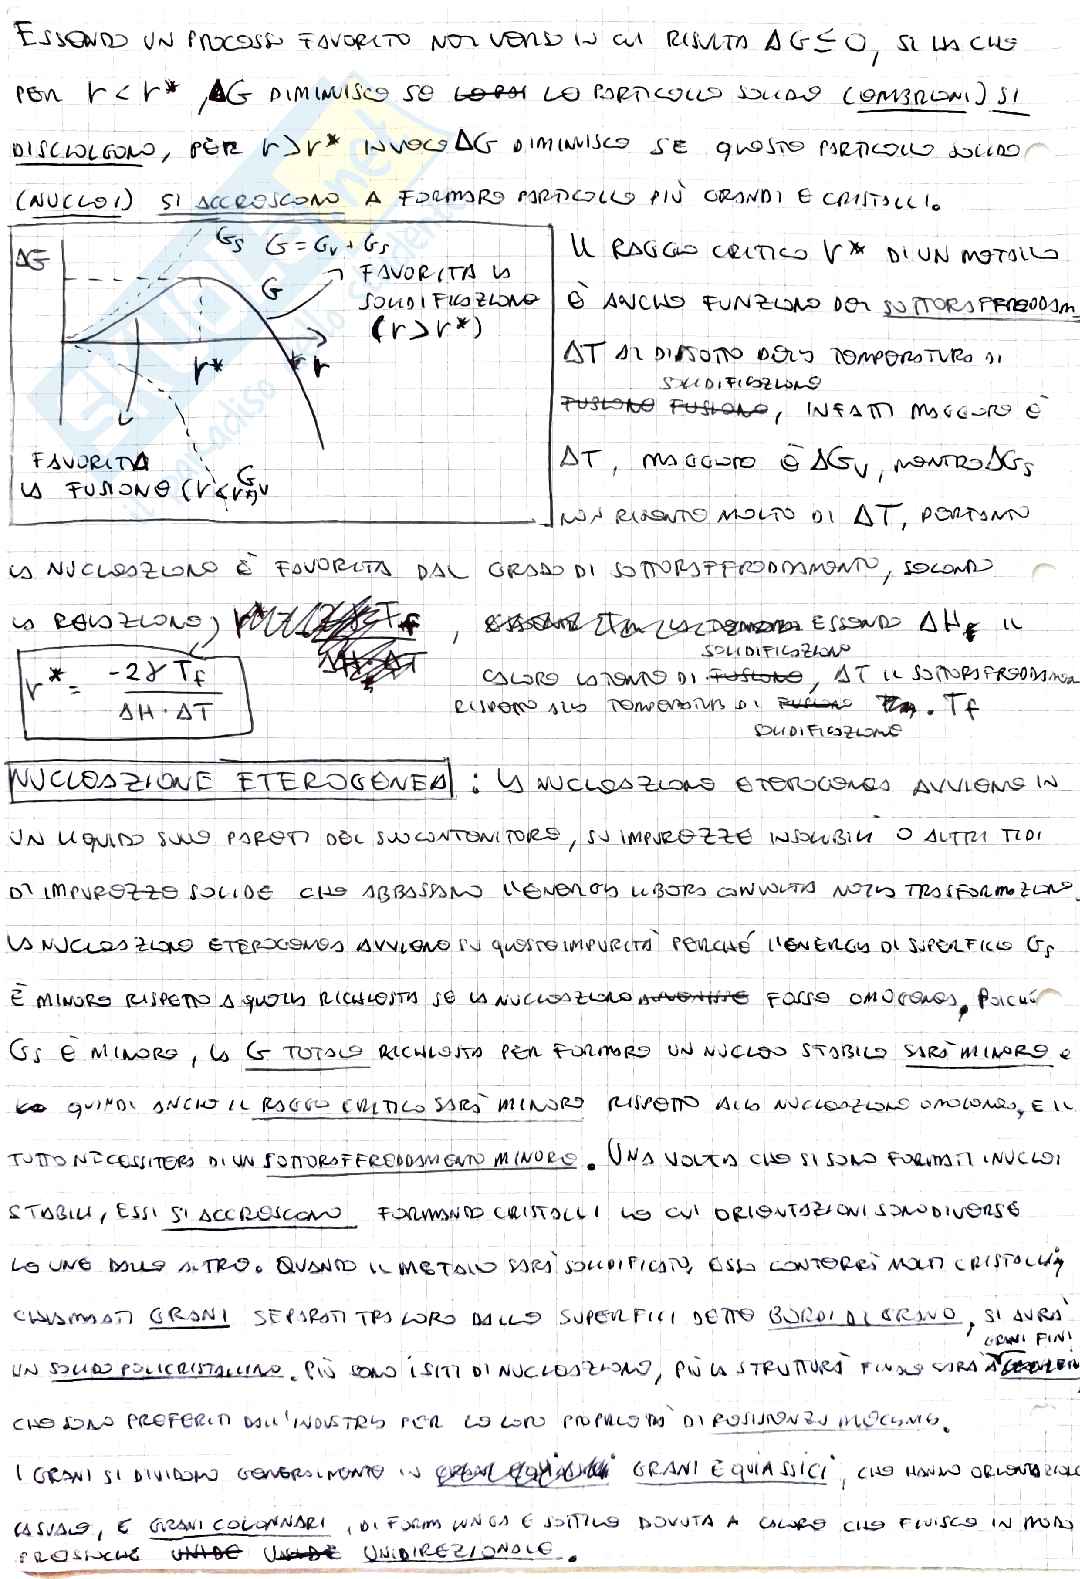 ESSENDO UN PROCESSO FAVORITO NEL VERSO IN CUI RISULTA ΔG≤0, SI HA CHE
PER r<r*, ΔG DIMINUISCE SE LE PARTICELLE SOLIDE (EMBRIONI) SI
DISCIOLGONO, PER r>r* INVECE ΔG DIMINUISCE SE QUESTE PARTICELLE SOLIDE
(NUCLEI) SI ACCRESCONO A FORMARE PARTICELLE PIÙ GRANDI E CRISTALLI.
ΔG
Gs G=Gv+Gs
G
FAVORITA LA
SOLIDIFICAZIONE
(r>r*)
r* r
FAVORITA
LA FUSIONE (r<r*)
Gv
IL RAGGIO CRITICO r* DI UN METALLO
È ANCHE FUNZIONE DEL SOTTORAFFREDDAM.
ΔT AL DI SOTTO DELLA TEMPERATURA DI
SOLIDIFICAZIONE
FUSIONE FUSIONE, INFATTI MAGGIORE È
ΔT, MAGGIORE È ΔGv, MENTRE ΔGs
NON RISENTE MOLTO DI ΔT, PERTANTO
LA NUCLEAZIONE È FAVORITA DAL GRADO DI SOTTORAFFREDDAMENTO, SECONDO
LA RELAZIONE, ESSENDO ΔHf IL
r* = -2γ Tf / ΔH · ΔT
SOLIDIFICAZIONE
CALORE LATENTE DI FUSIONE, ΔT IL SOTTORAFFREDDAMEN
RISPETTO ALLA TEMPERATURA DI FUSIONE Tm. Tf
SOLIDIFICAZIONE
NUCLEAZIONE ETEROGENEA: LA NUCLEAZIONE ETEROGENEA AVVIENE IN
UN LIQUIDO SULLE PARETI DEL SUO CONTENITORE, SU IMPUREZZE INSOLUBILI O ALTRI TIPI
DI IMPUREZZE SOLIDE CHE ABBASSANO L'ENERGIA LIBERA COINVOLTA NELLA TRASFORMAZIONE.
LA NUCLEAZIONE ETEROGENEA AVVIENE SU QUESTE IMPURITÀ PERCHÉ L'ENERGIA DI SUPERFICIE Gs
È MINORE RISPETTO A QUELLA RICHIESTA SE LA NUCLEAZIONE AVVENISSE FOSSE OMOGENEA. POICHÉ
Gs È MINORE, LA G TOTALE RICHIESTA PER FORMARE UN NUCLEO STABILE SARÀ MINORE E
QUINDI ANCHE IL RAGGIO CRITICO SARÀ MINORE RISPETTO ALLA NUCLEAZIONE OMOGENEA, E IL
TUTTO NECESSITERÀ DI UN SOTTORAFFREDDAMENTO MINORE. UNA VOLTA CHE SI SONO FORMATI I NUCLEI
STABILI, ESSI SI ACCRESCONO FORMANDO CRISTALLI LE CUI ORIENTAZIONI SONO DIVERSE
LE UNE DALLE ALTRE. QUANDO IL METALLO SARÀ SOLIDIFICATO, ESSO CONTERRÀ MOLTI CRISTALLI,
CHIAMATI GRANI SEPARATI TRA LORO DALLE SUPERFICI DETTE BORDI DI GRANO, SI AVRÀ
GRANI FINI
UN SOLIDO POLICRISTALLINO. PIÙ SONO I SITI DI NUCLEAZIONE, PIÙ LA STRUTTURA FINALE SARÀ A
CHE SONO PREFERITI DALL'INDUSTRIA PER LE LORO PROPRIETÀ DI RESISTENZA MECCANICA.
I GRANI SI DIVIDONO GENERALMENTE IN GRANI EQUIASSICI, CHE HANNO ORIENTAZIONE
CASUALE, E GRANI COLONNARI, DI FORMA LUNGA E SOTTILE DOVUTA A CALORE CHE FLUISCE IN MODO
PRESSOCHÉ UNIDIREZIONALE.